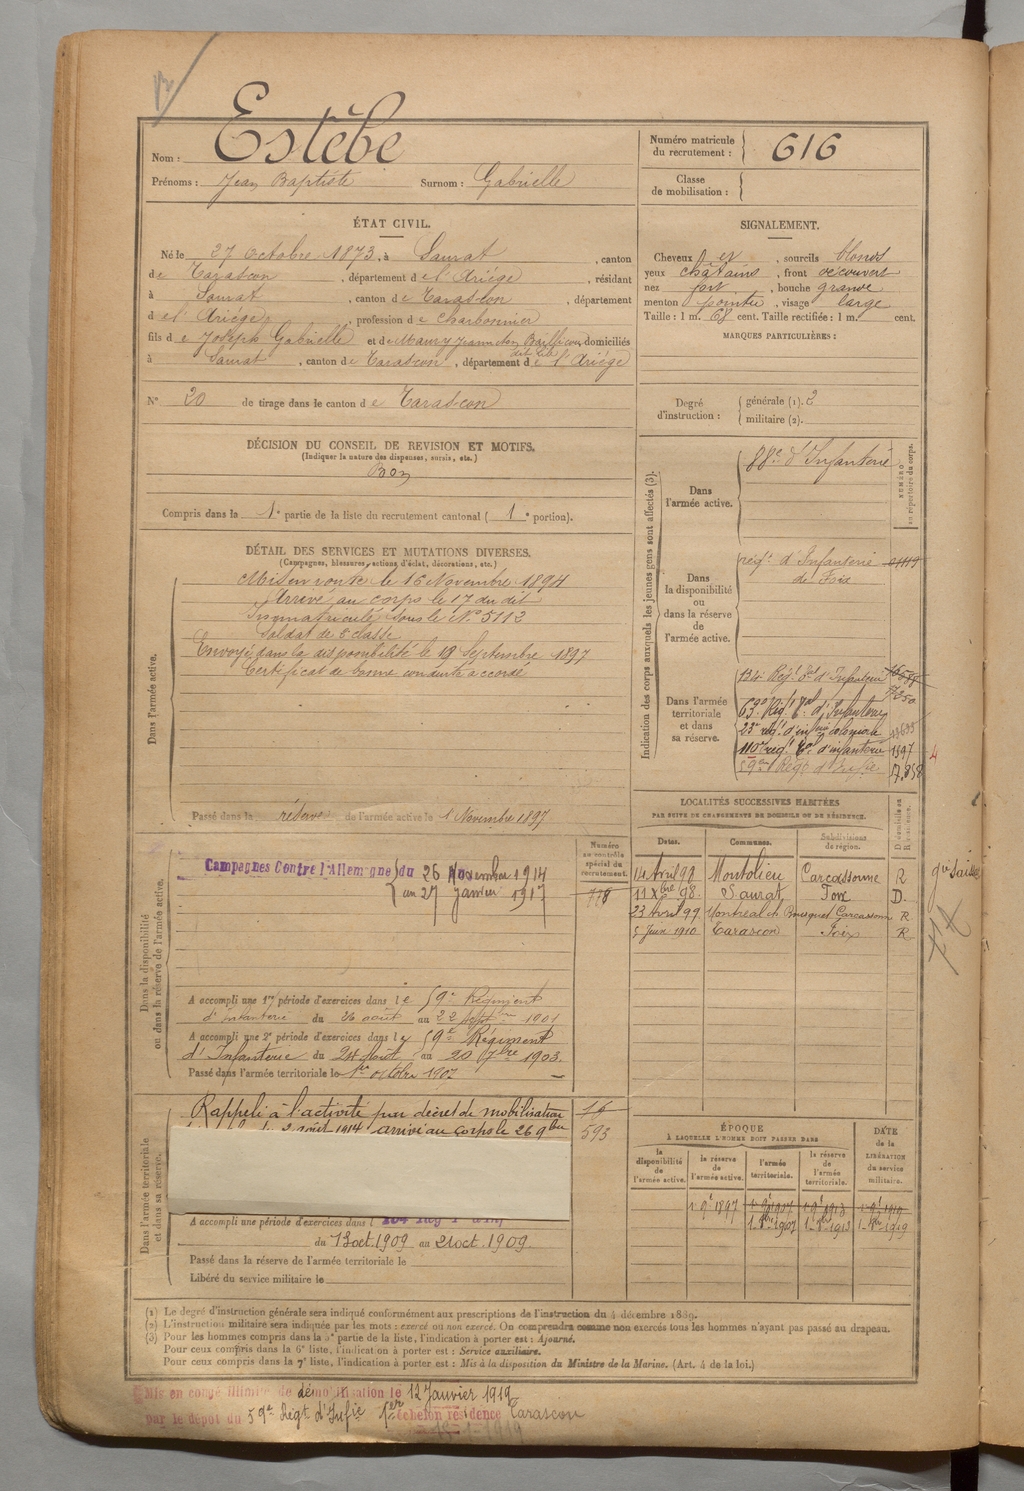 Nom : Estèbe
Prénoms : Jean Baptiste Surnom : Gabrielle
Numéro matricule du recrutement : 616
Classe de mobilisation :
ÉTAT CIVIL.
Né le 27 Octobre 1873, à Saurat, canton
de Tarascon, département de l'Ariége, résidant
à Saurat, canton de Tarascon, département
de l'Ariége, profession de charbonnier
fils de Joseph Gabrielle et de Maury domiciliés
à Saurat, canton de Tarascon, département de l'Ariége
N° 20 de tirage dans le canton de Tarascon
SIGNALEMENT.
Cheveux et, sourcils blonds
yeux châtains, front découvert
nez fort, bouche grande
menton pointu, visage large
Taille : 1 m. 68 cent. Taille rectifiée : 1 m. cent.
MARQUES PARTICULIÈRES :
Degré d'instruction : générale (1). 2
militaire (2).
DÉCISION DU CONSEIL DE REVISION ET MOTIFS.
(Indiquer la nature des dispenses, sursis, etc.)
Bon
Compris dans la 1e partie de la liste du recrutement cantonal (1e portion).
DÉTAIL DES SERVICES ET MUTATIONS DIVERSES.
(Campagnes, blessures, actions d'éclat, décorations, etc.)
Dans l'armée active.
Mis en route le 16 Novembre 1894
Arrivé au corps le 17 du dit
Immatriculé sous le N° 5112
Soldat de 2e classe
Envoyé dans la disponibilité le 19 Septembre 1897
Certificat de bonne conduite accordé
Passé dans la réserve de l'armée active le 1 Novembre 1897
Indication des corps auxquels les jeunes gens sont affectés (3).
NUMÉRO au répertoire du corps.
Dans l'armée active.
88e d'Infanterie
Dans la disponibilité ou dans la réserve de l'armée active.
régt d'Infanterie
de Foix
Dans l'armée territoriale et dans sa réserve.
134e Régt Tal d'Infanterie
63e Régt Tal d'Infanterie
23e régt d'infrie coloniale
110e régt Tal d'infanterie 1597
59e Régt d'Infie 17.858
LOCALITÉS SUCCESSIVES HABITÉES
PAR SUITE DE CHANGEMENTS DE DOMICILE OU DE RÉSIDENCE.
Dates. Communes. Subdivisions de région. D. domicile ou R. résidence.
14 Avril 98 Montolieu Carcassonne R
11 Xbre 98 Saurat Foix D.
23 Avril 99 Montréal Carcassonne R
5 Juin 1910 Tarascon Foix R
Dans la disponibilité ou dans la réserve de l'armée active.
Numéro au contrôle spécial du recrutement.
778
Campagnes Contre l'Allemagne du 26 Novembre 1914
au 27 janvier 1917
A accompli une 1re période d'exercices dans le 59e Régiment
d'infanterie du 26 août au 22 septbre 1901
A accompli une 2e période d'exercices dans le 59e Régiment
d'Infanterie du 24 Août au 20 7bre 1903.
Passé dans l'armée territoriale le 1er octobre 1907
Dans l'armée territoriale et dans sa réserve.
Rappelé à l'activité par décret de mobilisation
2 août 1914 arrivé au corps le 26 9bre
16
593
A accompli une période d'exercices dans l
du 13 oct. 1909 au 21 oct. 1909.
Passé dans la réserve de l'armée territoriale le
Libéré du service militaire le
ÉPOQUE
À LAQUELLE L'HOMME DOIT PASSER DANS
la disponibilité de l'armée active. la réserve de l'armée active. l'armée territoriale. la réserve de l'armée territoriale.
DATE de la LIBÉRATION du service militaire.
(1) Le degré d'instruction générale sera indiqué conformément aux prescriptions de l'instruction du 4 décembre 1889.
(2) L'instruction militaire sera indiquée par les mots : exercé ou non exercé. On comprendra comme non exercés tous les hommes n'ayant pas passé au drapeau.
(3) Pour les hommes compris dans la 5e partie de la liste, l'indication à porter est : Ajourné.
Pour ceux compris dans la 6e liste, l'indication à porter est : Service auxiliaire.
Pour ceux compris dans la 7e liste, l'indication à porter est : Mis à la disposition du Ministre de la Marine. (Art. 4 de la loi.)
Mis en congé illimité de démobilisation le 12 Janvier 1919
par le dépôt du 59e Régt d'Infie 1er échelon résidence Tarascon